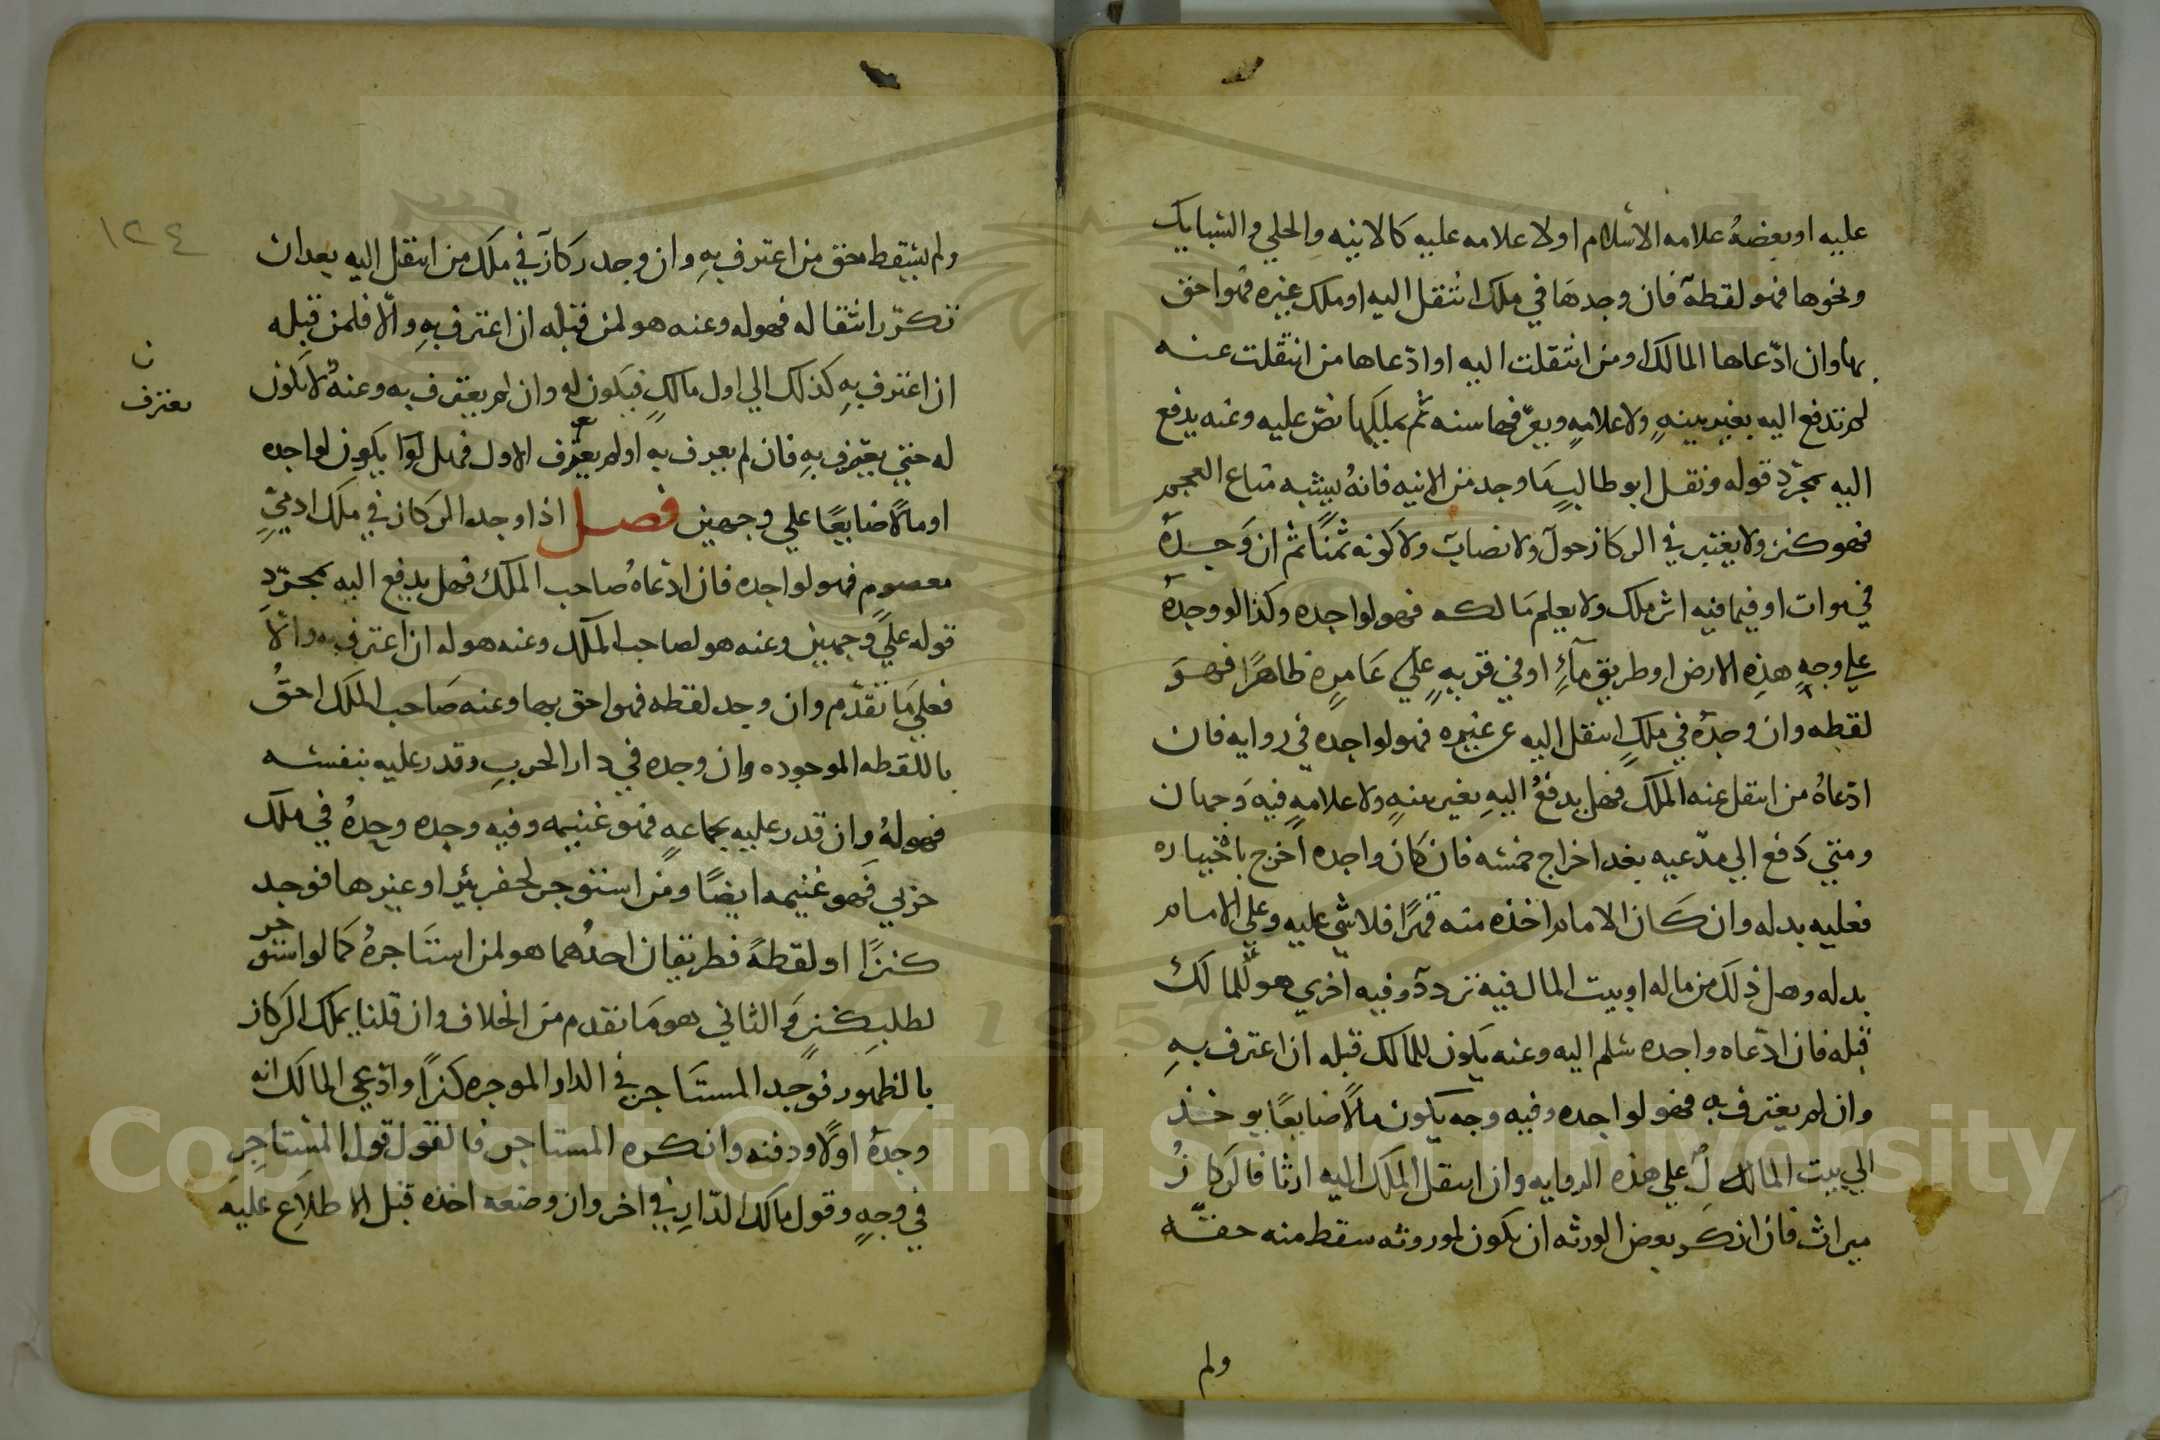 عليه او بعضه علامه الاسلام او لا علامه عليه كالانيه والحلي والسبايك
ونحوها فهو لقطة فان وجدها في ملك انتقل اليه او ملك غيره فهو احق
بها وان ادّعاها المالك او من انتقلت اليه او ادّعاها من انتقلت عنه
لم تدفع اليه بغير بينةٍ ولا علامةٍ ويعرّفها سنه ثم يملكها نصّ عليه وعنه يدفع
اليه بمجرّد قوله ونقل ابو طالب ما وجد من الانيه فانه يشبه متاع العجم
فهو كنز ولا يعتبر في الركاز حول ولا نصاب ولا كونه ثمنًا ثم ان وجده
في موات او فيما فيه اثر ملك ولا يعلم مالكه فهو لواجده وكذا لو وجده
علي وجه هذه الارض او طريق ماءٍ او في قريهٍ علي عامرة ظاهرًا فهو
لقطه وان وجده في ملكٍ انتقل اليه عن غيره فهو لواجده في روايه فان
ادّعاه من انتقل عنه الملك فهل يدفع اليه بغير بينهٍ ولا علامهٍ فيه وجهان
ومتي دفع الي مدّعيه بعد اخراج خمسه فان كان واجده اخرج باختياره
فعليه بدله وان كان الامام اخذه منه قهرًا فلا شي عليه وعلي الامام
بدله وهل ذلك من ماله او بيت المال فيه تردد وفيه اخري هو للمالك
قبله فان ادّعاه واجده سلم اليه وعنه يكون للمالك قبله ان اعترف به
وان لم يعترف به فهو لواجده وفيه وجه يكون مالًا ضايعًا يوخذ
الي بيت المال علي هذه الروايه وان انتقل الملك اليه ارثا فالركاز
ميراث فان انكر بعض الورثه ان يكون لموروثه سقط منه حقه
ولم
١٢٤
ولم يسقط حق من اعترف به وان وجد ركازًا في ملك من انتقل اليه بعد ان
تكرّر انتقاله فهو له وعنه هو لمن قبله ان اعترف به والّا فلمن قبله
ان اعترف به كذلك الي اول مالكٍ فيكون له وان لم يعترف به وعنه لا يكون
ن
يعترف
له حتي يعترف به فان لم يعرف به او لم يعترف الاول فهل يكون لواجده
او مالًا ضايعًا علي وجهين فصل اذا وجد الركاز في ملك ادميٍّ
معصوم فهو لواجده فان ادّعاه صاحب الملك فهل يدفع اليه بمجرّد
قوله علي وجهين وعنه هو لصاحب الملك وعنه هو له ان اعترف به والّا
فعلي ما تقدّم وان وجد لقطه فهو احق بها وعنه صاحب الملك احق
باللقطه الموجوده وان وجده في دار الحرب وقدر عليه بنفسه
فهو له وان قدر عليه بجماعه فهو غنيمه وفيه وجه وجده في ملك
حربي فهو غنيمه ايضًا ومن استوجر لحفر بئر او غيرها فوجد
كنزًا او لقطةً فطريقان احدهما هو لمن استاجره كما لو استوجر
لطلب كنز والثاني هو ما تقدم من الخلاف وان قلنا يملك الركاز
بالظهور فوجد المستاجر في الدار الموجره كنزًا وادّعي المالك انه
وجده اولًا ودفنه وانكره المستاجر فالقول قول المستاجر
في وجهٍ وقول مالك الدّار في اخر وان وضعه اخذه قبل الاطلاع عليه
Copyright © King Saud University
1957